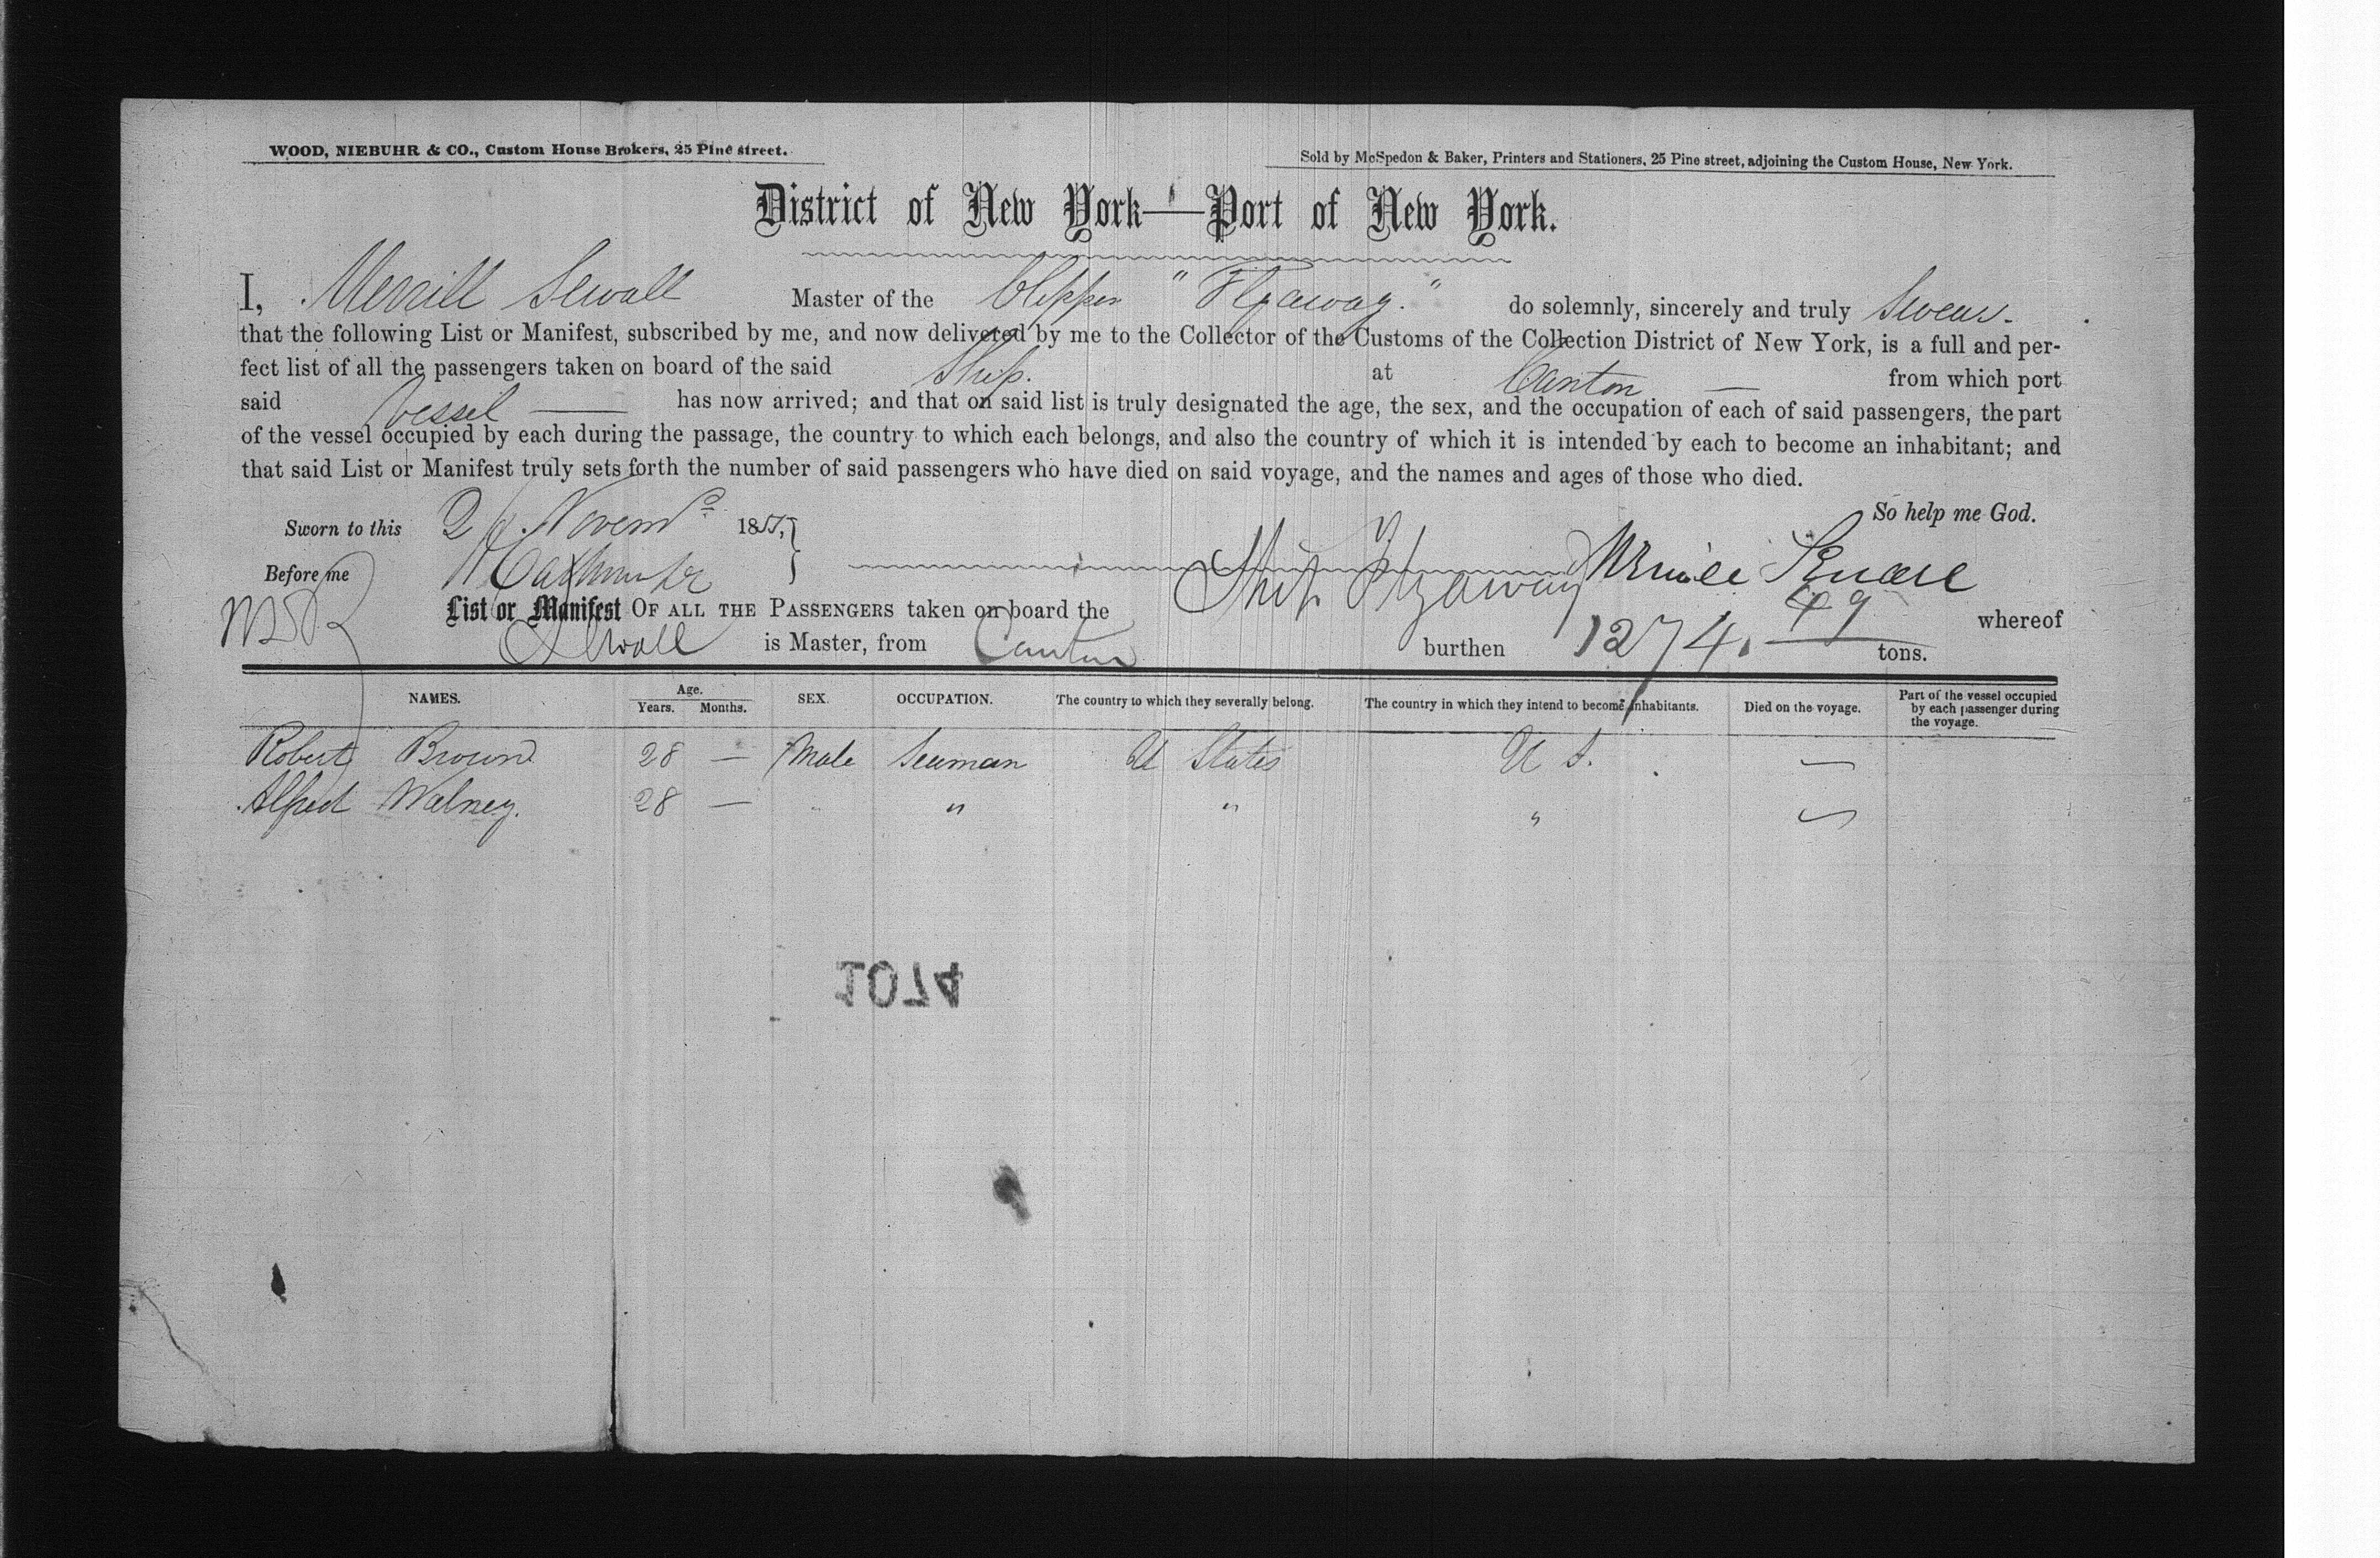 WOOD, NIEBUHR & CO., Custom House Brokers, 25 Pine street.
Sold by McSpedon & Baker, Printers and Stationers, 25 Pine street, adjoining the Custom House, New York.
District of New York—Port of New York.
I, Merrill Sewall Master of the Clipper "Flyaway." do solemnly, sincerely and truly Swear.
that the following List or Manifest, subscribed by me, and now delivered by me to the Collector of the Customs of the Collection District of New York, is a full and per-
fect list of all the passengers taken on board of the said Ship. at Canton — from which port
said Vessel — has now arrived; and that on said list is truly designated the age, the sex, and the occupation of each of said passengers, the part
of the vessel occupied by each during the passage, the country to which each belongs, and also the country of which it is intended by each to become an inhabitant; and
that said List or Manifest truly sets forth the number of said passengers who have died on said voyage, and the names and ages of those who died.
So help me God.
Sworn to this Novem 185
Before me
List or Manifest OF ALL THE PASSENGERS taken on board the Ship Flyaway whereof
Sewall is Master, from Canton burthen 1274. 49 tons.
NAMES. Age. Years. Months. SEX. OCCUPATION. The country to which they severally belong. The country in which they intend to become inhabitants. Died on the voyage. Part of the vessel occupied by each passenger during the voyage.
Robert Brown 28 — Male Seaman U States U S. —
Alfred Walney. 28 — " " " " —
1074